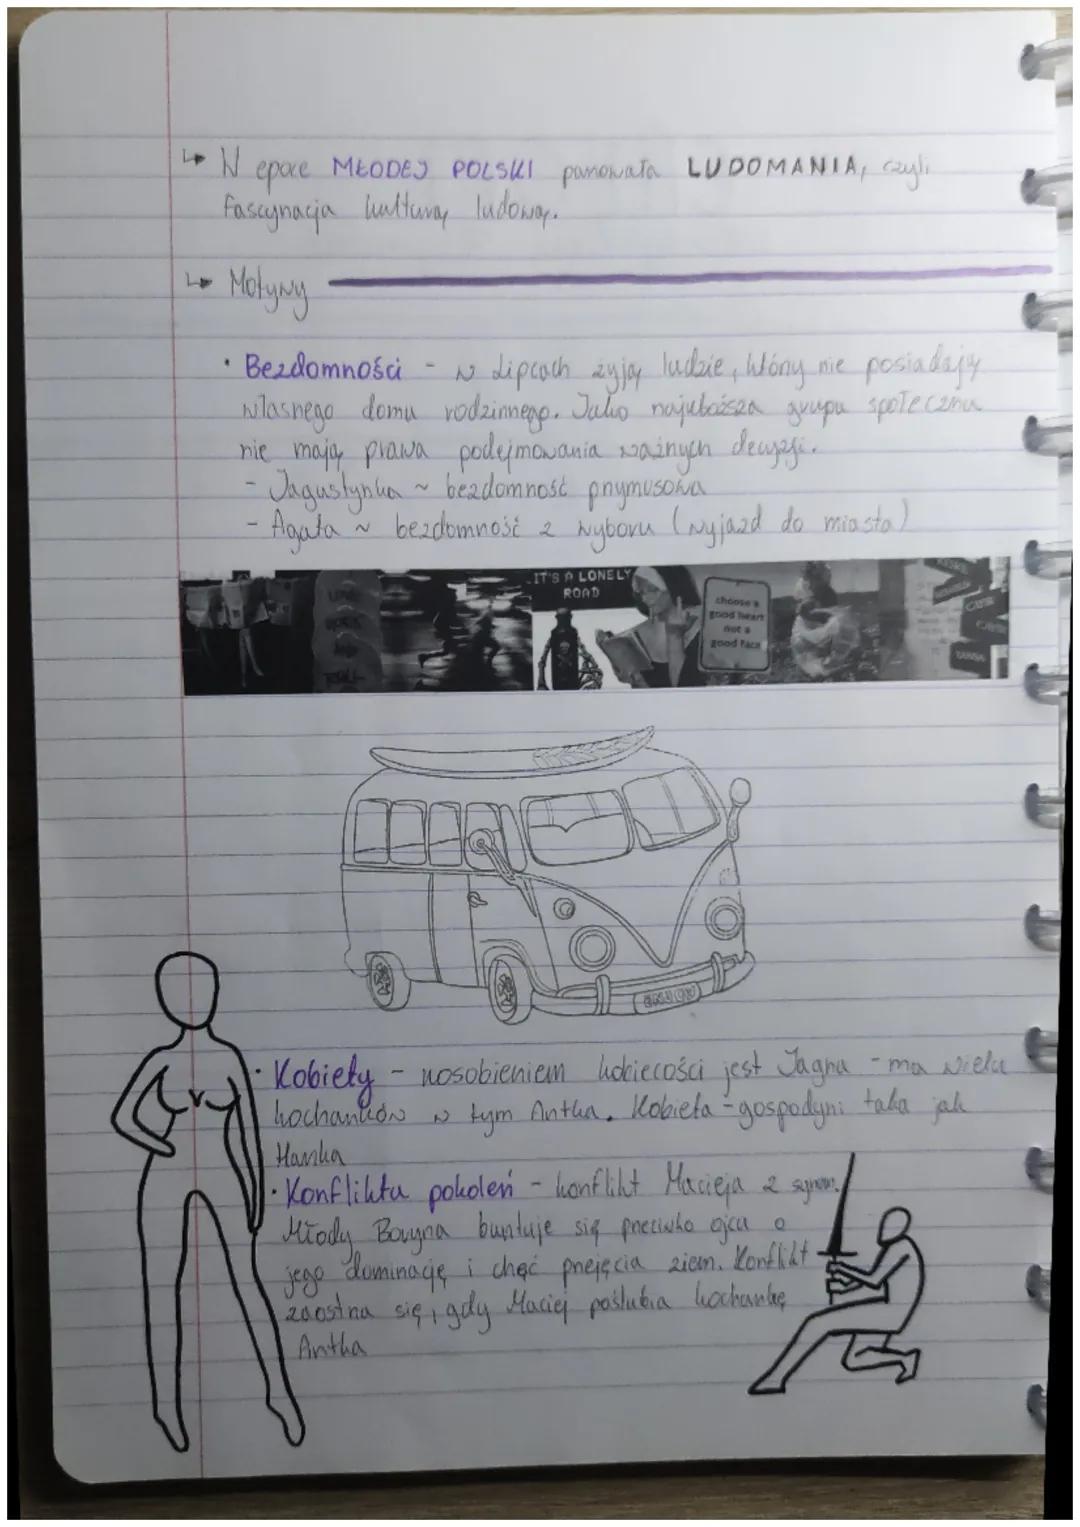 ↳ W epoce MŁODEJ POLSKI panowała LUDOMANIA, czyli
fascynacja kulturą ludową.
↳ Motywy
• Bezdomności - w Lipcach żyją ludzie, którzy nie posiadają
własnego domu rodzinnego. Jako najuboższa grupa społeczna
nie mają prawa podejmowania ważnych decyzji.
- Jagustynka ~ bezdomność przymusowa
- Agata ~ bezdomność z wyboru (wyjazd do miasta)
IT'S A LONELY
ROAD
choose a
good heart
not a
good face
ENJOY
• Kobiety - uosobieniem kobiecości jest Jagna - ma wielu
kochanków w tym Antka. Kobieta - gospodyni taka jak
Hanka
• Konfliktu pokoleń - konflikt Macieja z synem.
Młody Boryna buntuje się przeciwko ojcu o
jego dominację i chęć przejęcia ziem. Konflikt
zaostrza się, gdy Maciej poślubia kochankę
Antka